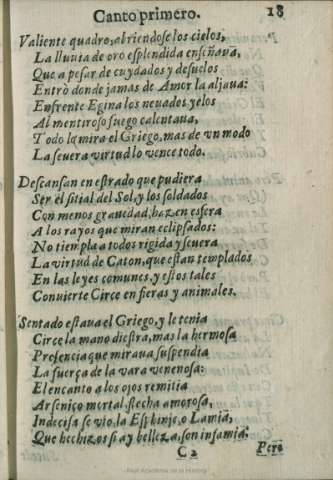 Canto primero. 18
Valiente quadro, abriendose los cielos,
La lluuia de oro esplendida enseñaua,
Que a pesar de cuydados y desuelos
Entrò donde jamas de Amor la aljaua:
Enfrente Egina los neuados yelos
Al mentiroso fuego calentaua,
Todo lo mira el Griego, mas de vn modo
La seuera virtud lo vence todo.
Descansan en estrado que pudiera
Ser el sitial del Sol, y los soldados
Con menos grauedad, hazen esfera
A los rayos que miran eclipsados:
No tiempla a todos rigida y seuera
La virtud de Caton, que estan templados
En las leyes comunes, y estos tales
Conuierte Circe en fieras y animales.
Sentado estaua el Griego, y le tenia
Circe la mano diestra, mas la hermosa
Presencia que miraua suspendia
La fuerça de la vara venenosa:
El encanto a los ojos remitia
Arsenico mortal, flecha amorosa,
Indecisa se vio, la Esphinje, o Lamia,
Que hechizos si ay belleza, son infamia.
C2 Pero
Real Academia de la Historia